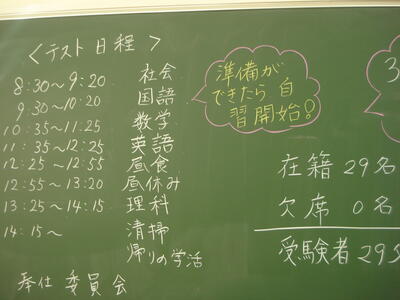 <テスト日程>
8:30~9:20 社会
9:30~10:20 国語
10:35~11:25 数学
11:35~12:25 英語
12:25~12:55 昼食
12:55~13:20 昼休み
13:25~14:15 理科
14:15~ 清掃
帰りの学活
奉仕委員会
準備が
できたら自
習開始!
3
在籍 29名
欠席 0名
受験者 29